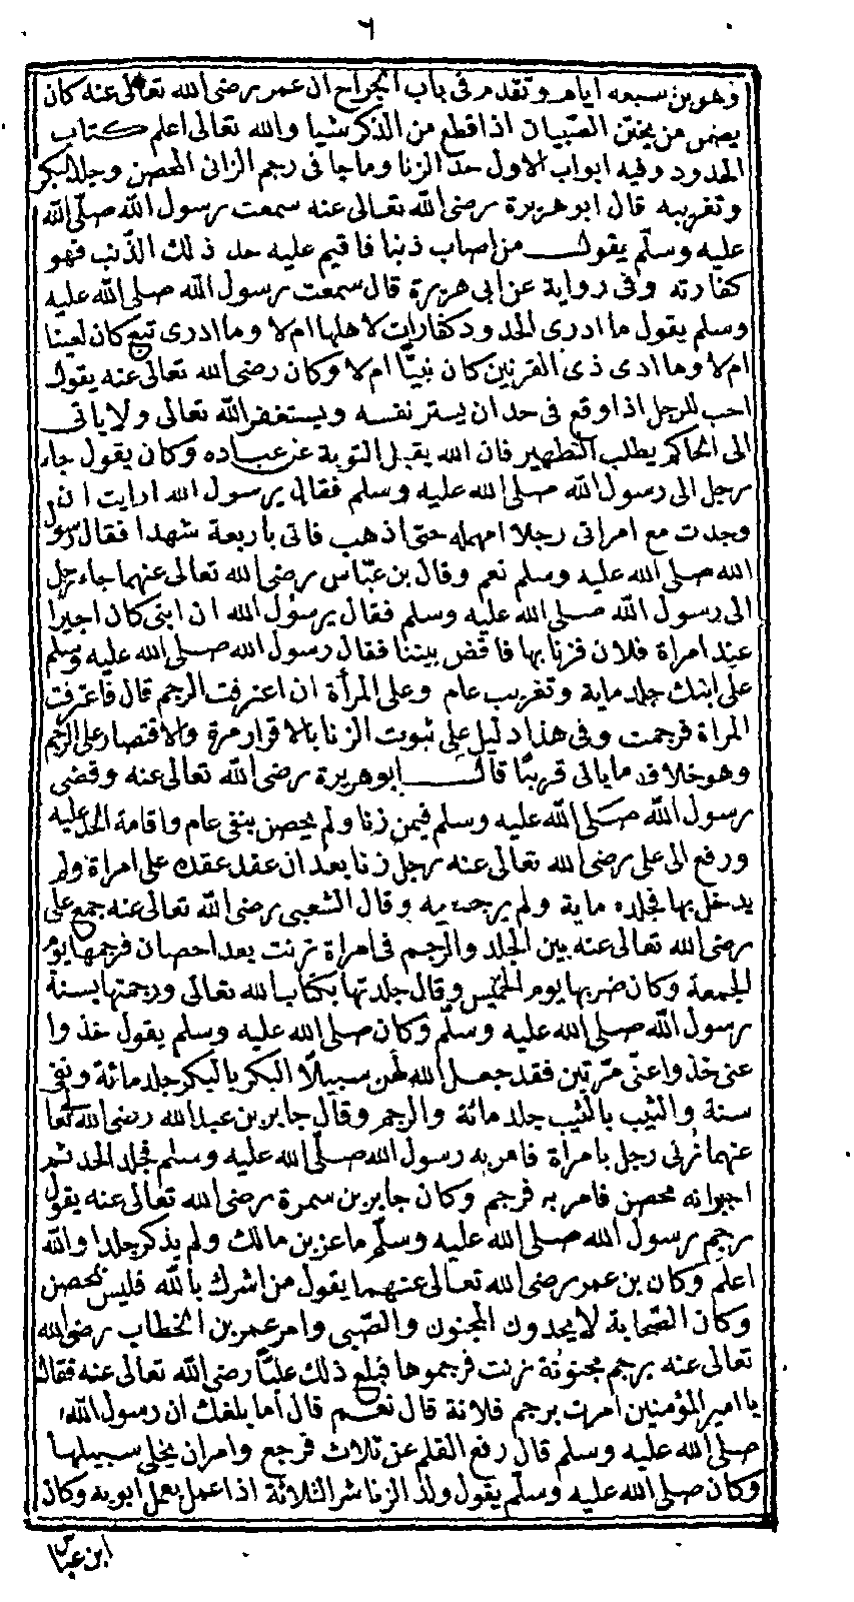 ٦
وهو بن سبعه ايام وتقدم في باب الجراح ان عمر رضى الله تعالى عنه كان
يضمن من يختن الصبيان اذا قطع من الذكر شيا والله تعالى اعلم كتاب
الحدود وفيه ابواب الاول حد الزنا وما جا فى رجم الزانى المحصن وجلد البكر
وتغريبه قال ابو هريرة رضى الله تعالى عنه سمعت رسول الله صلى الله
عليه وسلم يقول من اصاب ذنبا فاقيم عليه حد ذلك الذنب فهو
كفارته وفى رواية عن ابى هريرة قال سمعت رسول الله صلى الله عليه
وسلم يقول ما ادرى الحدود كفارات لاهلها ام لا وما ادرى تبع كان لعينا
ام لا وما ادى ذى القرنين كان نبيًّا ام لا وكان رضى الله تعالى عنه يقول
احب للرجل اذا وقع فى حد ان يستر نفسه ويستغفر الله تعالى ولا ياتى
الى الحاكم يطلب التطهير فان الله يقبل التوبة عن عباده وكان يقول جاء
رجل الى رسول الله صلى الله عليه وسلم فقال يرسول الله ارايت ان
وجدت مع امراتى رجلا امهله حتى اذهب فاتى باربعة شهدا فقال رسول
الله صلى الله عليه وسلم نعم وقال بن عباس رضى الله تعالى عنهما جاء رجل
الى رسول الله صلى الله عليه وسلم فقال يرسول الله ان ابنى كان اجيرا
عند امراة فلان فزنا بها فاقض بيننا فقال رسول الله صلى الله عليه وسلم
على ابنك جلد ماية وتغريب عام وعلى المرأة ان اعترفت الرجم قال فاعترفت
المراة فرجمت وفى هذا دليل على ثبوت الزنا بالاقرار مرة والاقتصار على الرجم
وهو خلاف ما ياتى قريبًا قال ابو هريرة رضى الله تعالى عنه وقضى
رسول الله صلى الله عليه وسلم فيمن زنا ولم يحصن بنفى عام واقامة الحد عليه
ورفع الى على رضى الله تعالى عنه رجل زنا بعد ان عقد عقده على امراة ولم
يدخل بها فجلده ماية ولم يرجمه وقال الشعبى رضى الله تعالى عنه جمع على
رضى الله تعالى عنه بين الجلد والرجم فى امراة زنت بعد احصان فرجمها يوم
الجمعة وكان ضربها يوم الخميس وقال جلدتها بكتاب الله تعالى ورجمتها بسنة
رسول الله صلى الله عليه وسلم وكان صلى الله عليه وسلم يقول خذوا
عنى خذوا عنى مرتين فقد جعل الله لهن سبيلا البكر بالبكر جلد مائة ونفى
سنة والثيب بالثيب جلد مائة والرجم وقال جابر بن عبد الله رضى الله تعا
عنهما زنى رجل بامراة فامر به رسول الله صلى الله عليه وسلم فجلد الحد ثم
اجبر انه محصن فامر به فرجم وكان جابر بن سمرة رضى الله تعالى عنه يقول
رجم رسول الله صلى الله عليه وسلم ماعز بن مالك ولم يذكر جلدا والله
اعلم وكان بن عمر رضى الله تعالى عنهما يقول من اشرك بالله فليس بمحصن
وكان الصحابة لا يحدون المجنون والصبى وامر عمر بن الخطاب رضى الله
تعالى عنه برجم مجنونة زنت فرجموها فبلغ ذلك عليًّا رضى الله تعالى عنه فقال
يا امير المؤمنين امرت برجم فلانة قال نعم قال أما بلغك ان رسول الله
صلى الله عليه وسلم قال رفع القلم عن ثلاث فرجع وامر ان يخلى سبيلها
وكان صلى الله عليه وسلم يقول ولد الزنا شر الثلاثة اذا عمل بعمل ابويه وكان
ابن عباس